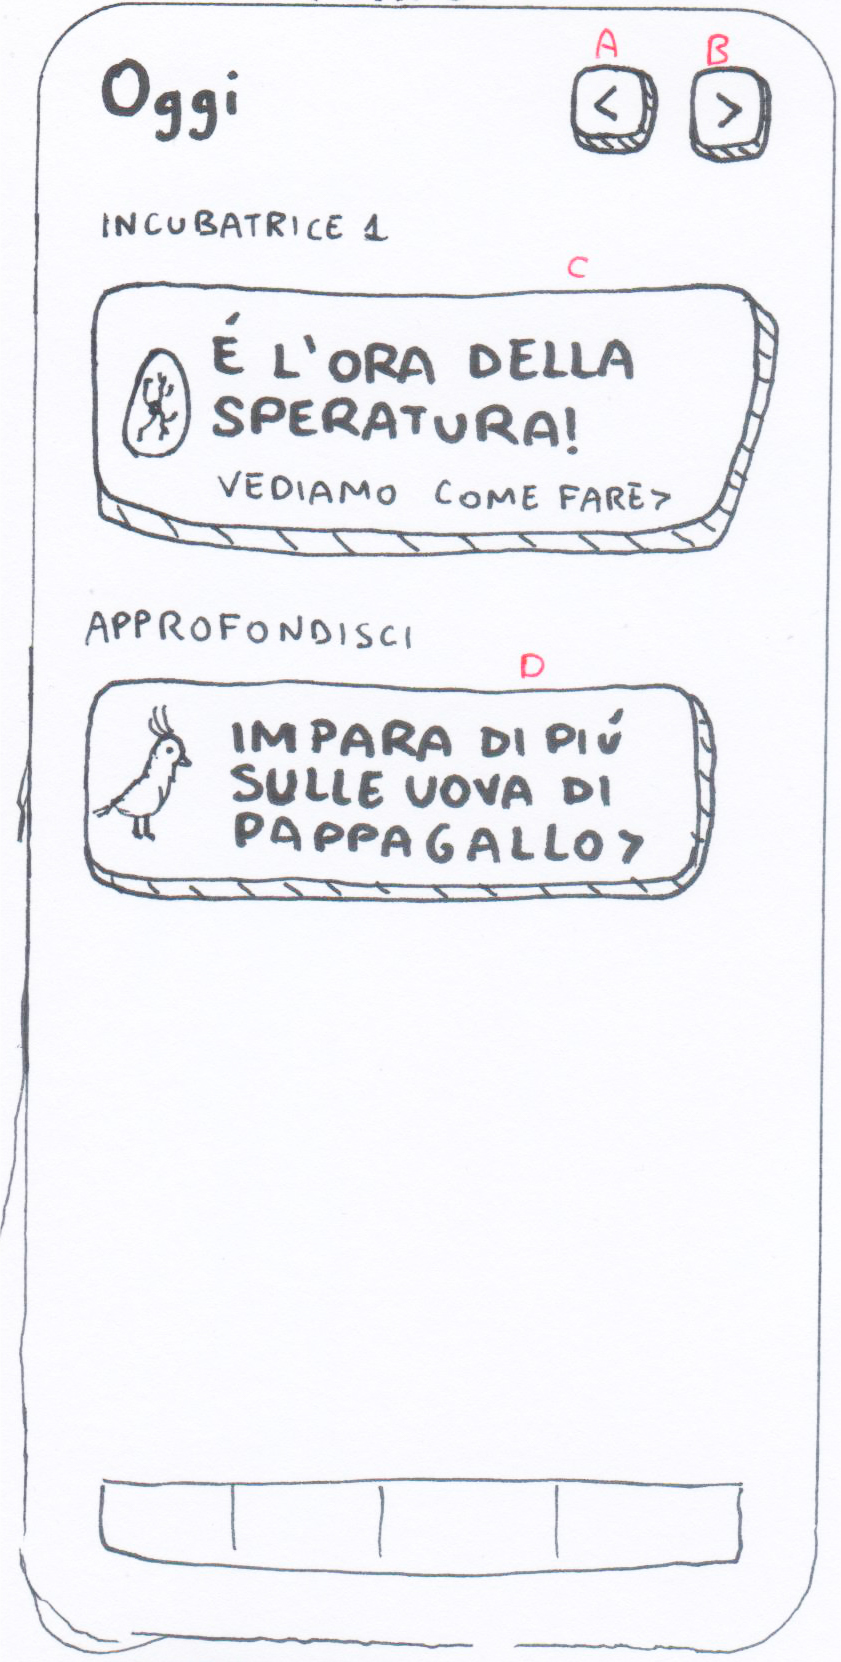 Oggi
A
B
<
>
INCUBATRICE 1
C
É L'ORA DELLA
SPERATURA!
VEDIAMO COME FARE>
APPROFONDISCI
D
IMPARA DI PIÚ
SULLE UOVA DI
PAPPAGALLO>